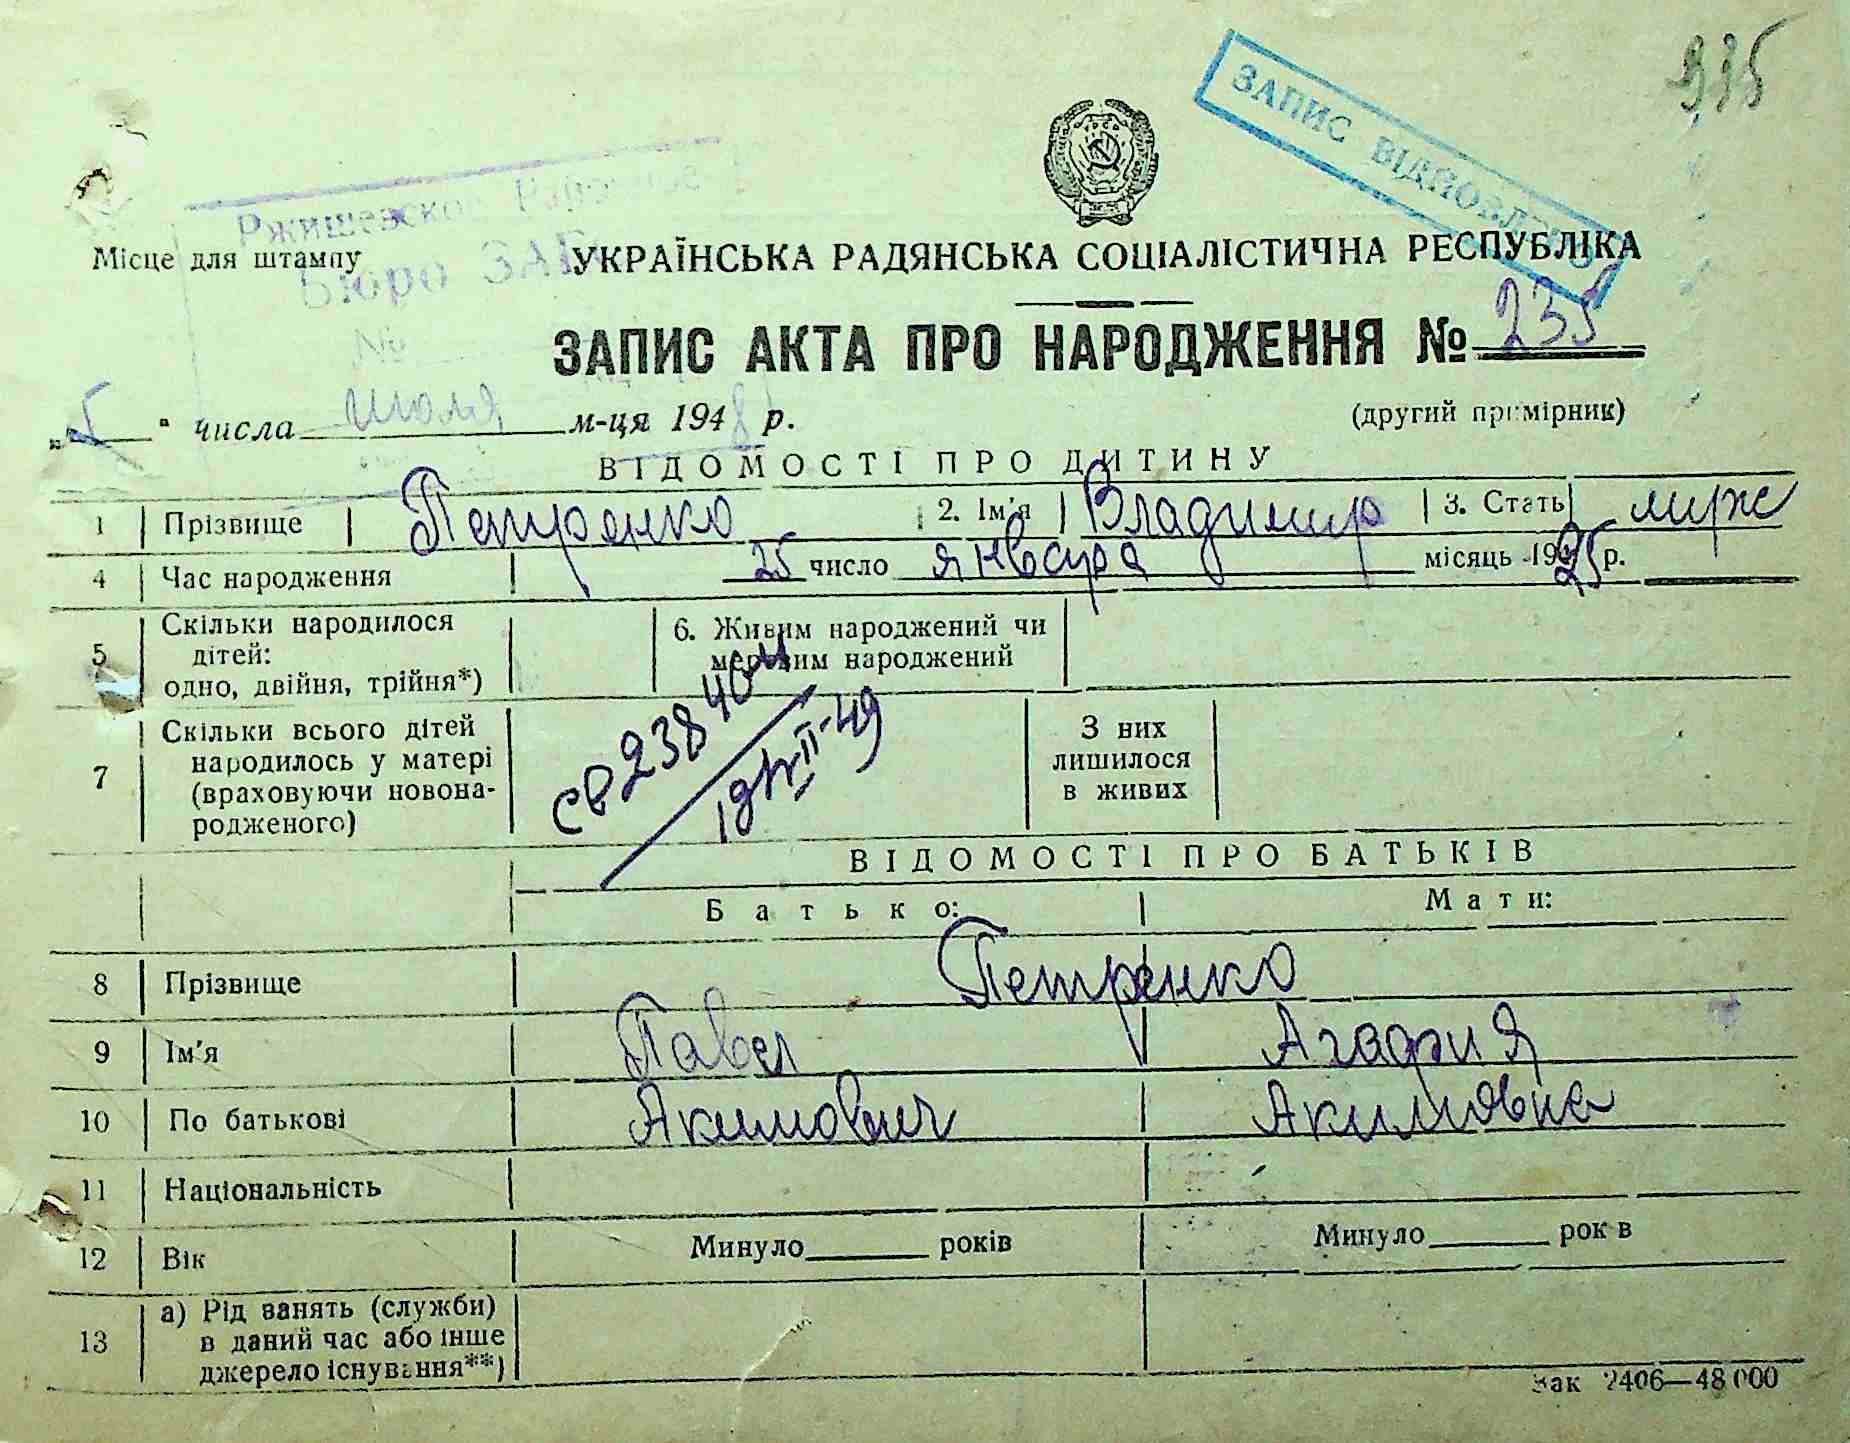 935
ЗАПИС ВІДНОВЛЕНО
Ржищевское Районное
Бюро ЗАГС
№
Місце для штампу
УКРАЇНСЬКА РАДЯНСЬКА СОЦІАЛІСТИЧНА РЕСПУБЛІКА
ЗАПИС АКТА ПРО НАРОДЖЕННЯ № 235
„5" числа июля м-ця 1948 р.
(другий примірник)
ВІДОМОСТІ ПРО ДИТИНУ
1 Прізвище Петренко 2. Ім'я Владимир 3. Стать муж
4 Час народження 25 число января місяць 1925 р.
5 Скільки народилося дітей: одно, двійня, трійня*)
6. Живим народжений чи мертвим народжений
7 Скільки всього дітей народилось у матері (враховуючи новонародженого)
З них лишилося в живих
19/VII-49
ВІДОМОСТІ ПРО БАТЬКІВ
Батько: Мати:
8 Прізвище Петренко
9 Ім'я Павел Агафия
10 По батькові Акимович Акимовна
11 Національність
12 Вік Минуло років Минуло років
13 а) Рід занять (служби) в даний час або інше джерело існування**)
Зак 2406—48 000